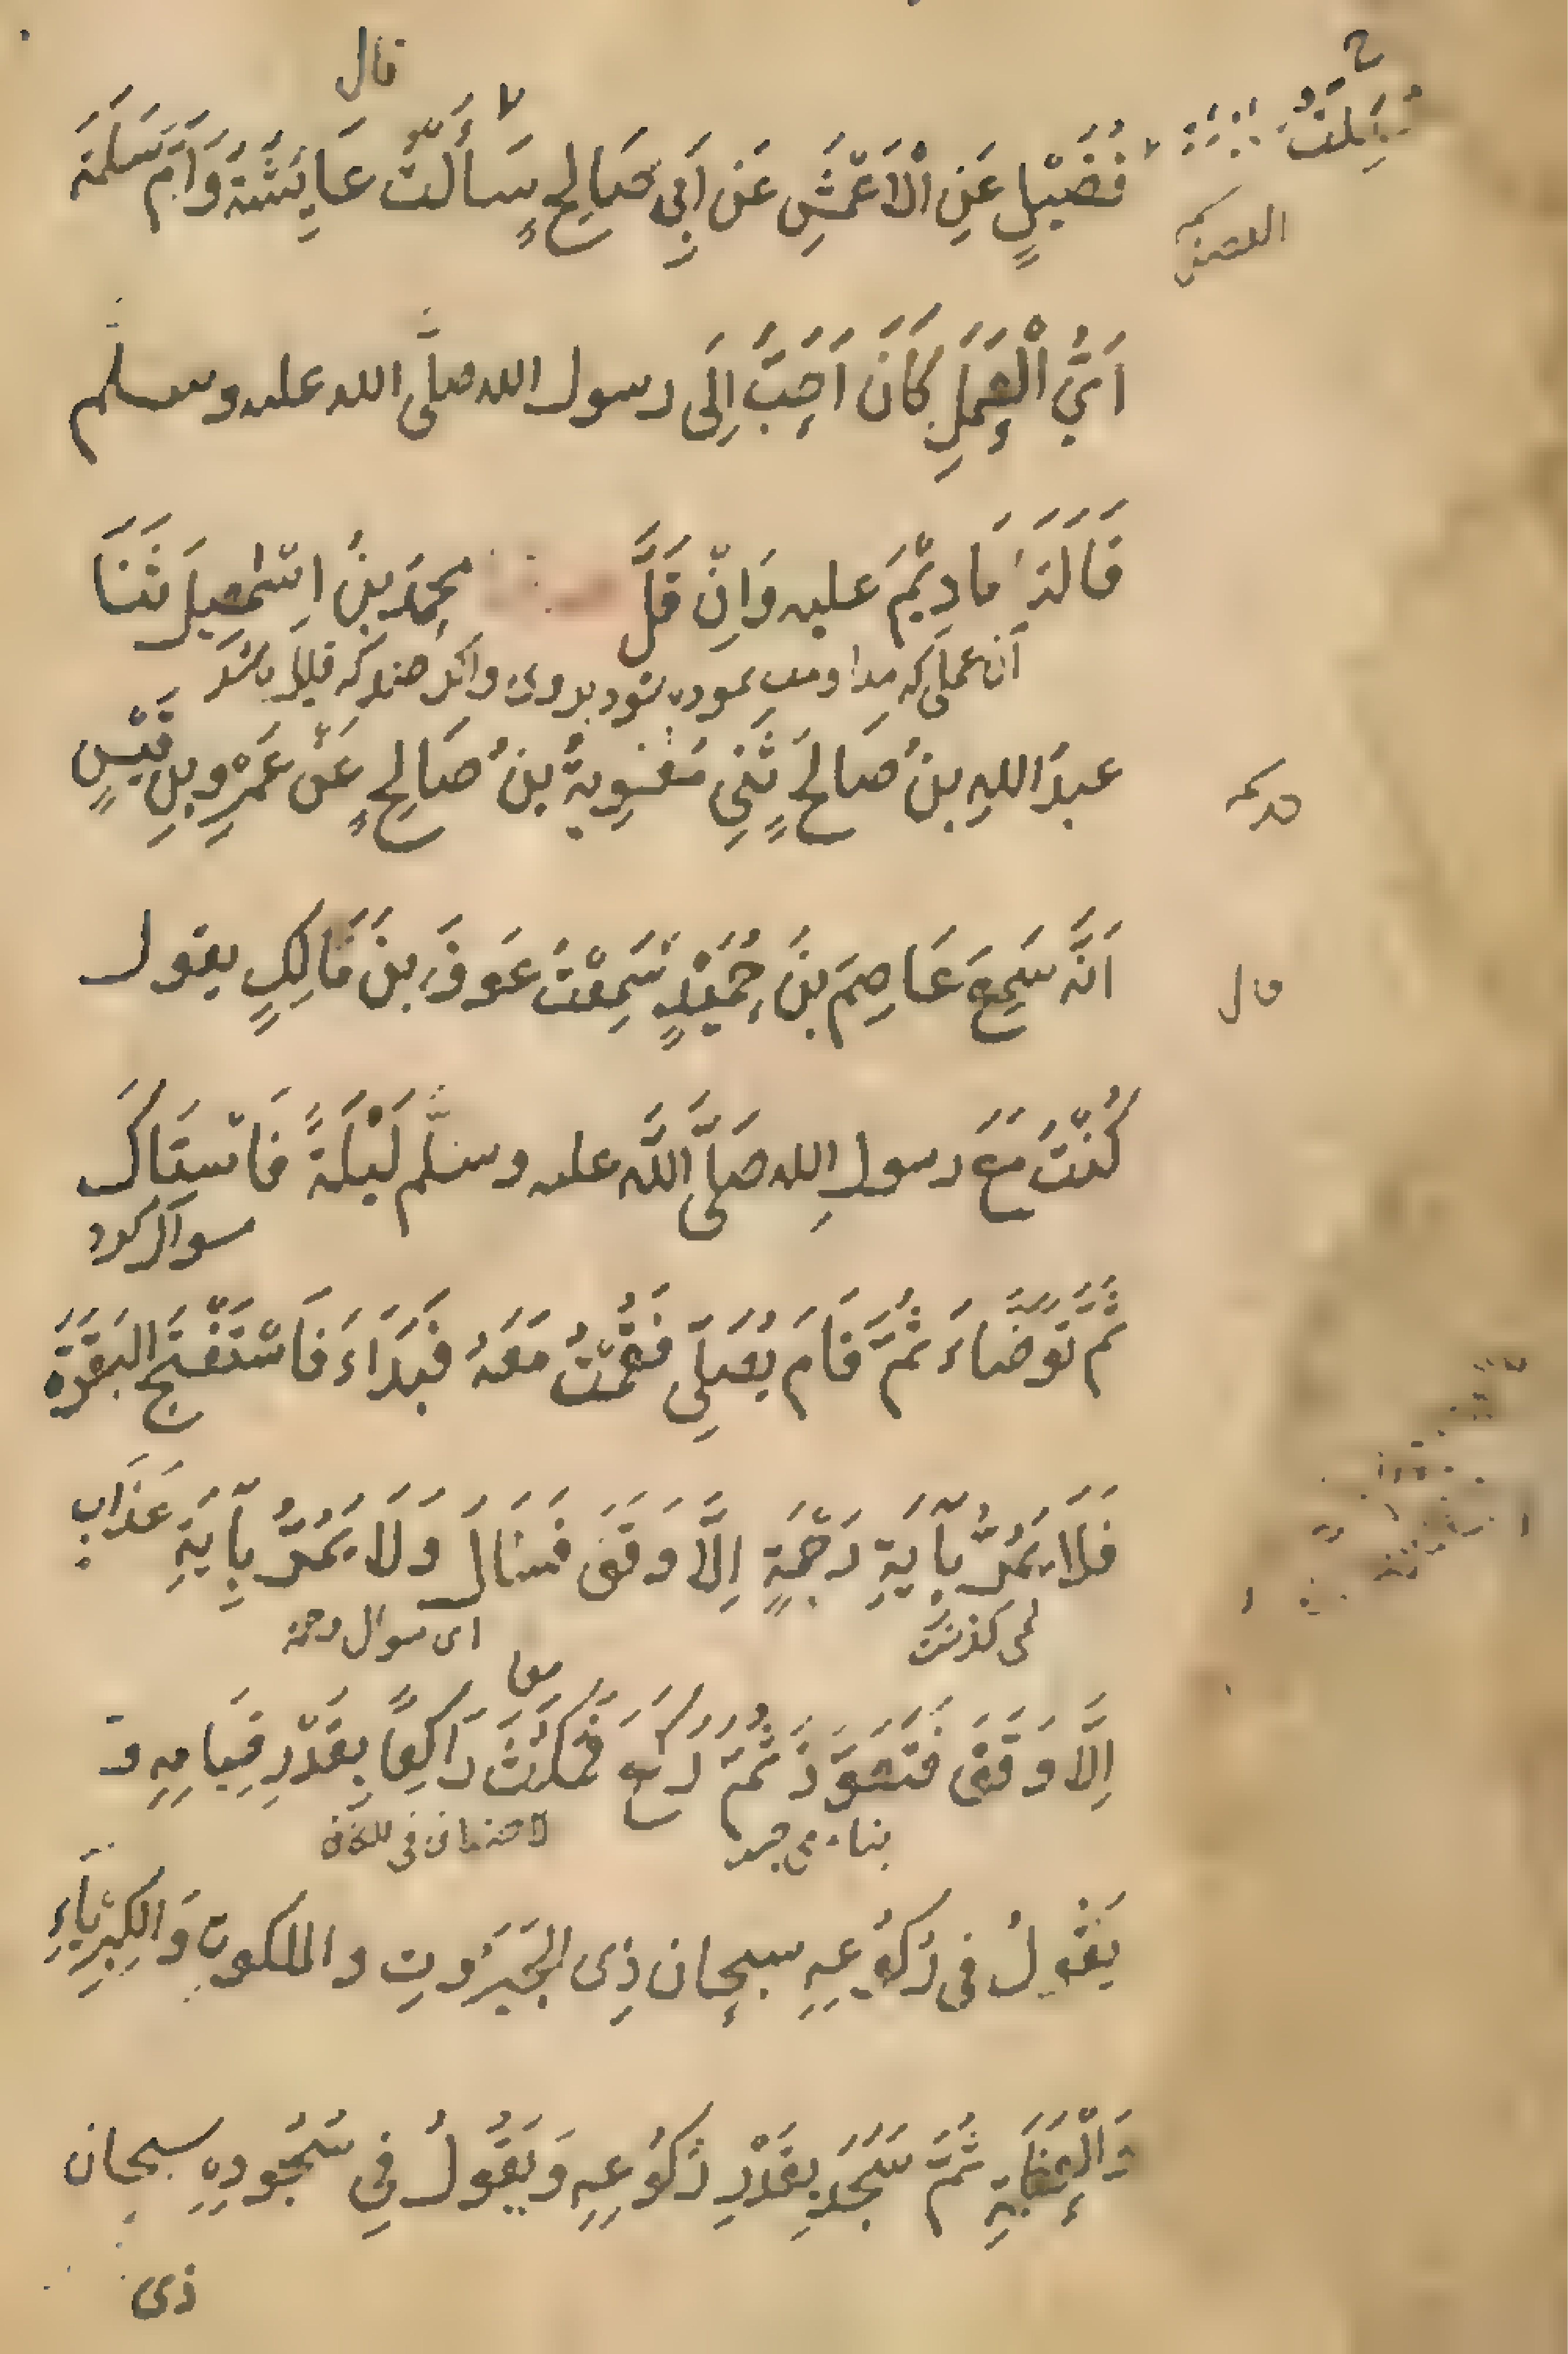 قال
فُضَيْلٍ عَنِ الْاَعْمَشِ عَن اَبِي صَالِحٍ سَأَلْتُ عَايِشَةَ وَاُمَّ سَلَمَةَ
اَيُّ الْعَمَلِ كَانَ اَحَبَّ اِلَى رسول الله صلَّى الله علیه وسلَّم
قَالَتَا مَا دِيْمَ علیه وَاِنْ قَلَّ محمدَ بنُ اسْمٰعِيلَ ثَنَا
آن عملی که مداومت نموده شود بروی واگر چند که قلیل باشد
عبدُ اللهِ بنُ صَالحٍ ثَنِي مُعٰوِيةُ بنُ صَالِحٍ عَنْ عَمْرِو بنِ قَيْسٍ
اَنَّه سَمِعَ عَاصِمَ بنَ حُمَيْدٍ سَمِعْتُ عَوفَ بنَ مَالِكٍ يقول
قال
كُنْتُ مَعَ رسولِ الله صَلَّى اللَّه علیه وسلَّم لَيْلَةً فَاسْتَاكَ
سواک کرد
ثُمَّ تَوَضَّاءَ ثُمَّ قَامَ يُصَلِّي فَقُمْتُ مَعَهُ فَبَدَاءَ فَاسْتَفْتَحَ البَقَرَةَ
فَلَا يَمُرُّ بِآيَةِ رَحْمَةٍ اِلَّا وَقَفَ فَسَاَلَ وَلَا يَمُرُّ بِآيَةِ عَذَابٍ
نمی کذشت
ای سوال رحمة
اِلَّا وَقَفَ فَتَعَوَّذَ ثُمَّ رَكَعَ فَمَكَثَ رَاكِعًا بِقَدْرِ قِيَامِهِ وَ
بناه می جست
يَقُولُ فی رُكُوعِهِ سبحان ذِی الجَبَرُوتِ والملكوت وَالكِبْرِيَاءِ
وَالْعَظَمَةِ ثُمَّ سَجَدَ بِقَدْرِ رُكُوعِهِ وَيَقُولُ فِي سُجُودِهِ سبحان
ذی